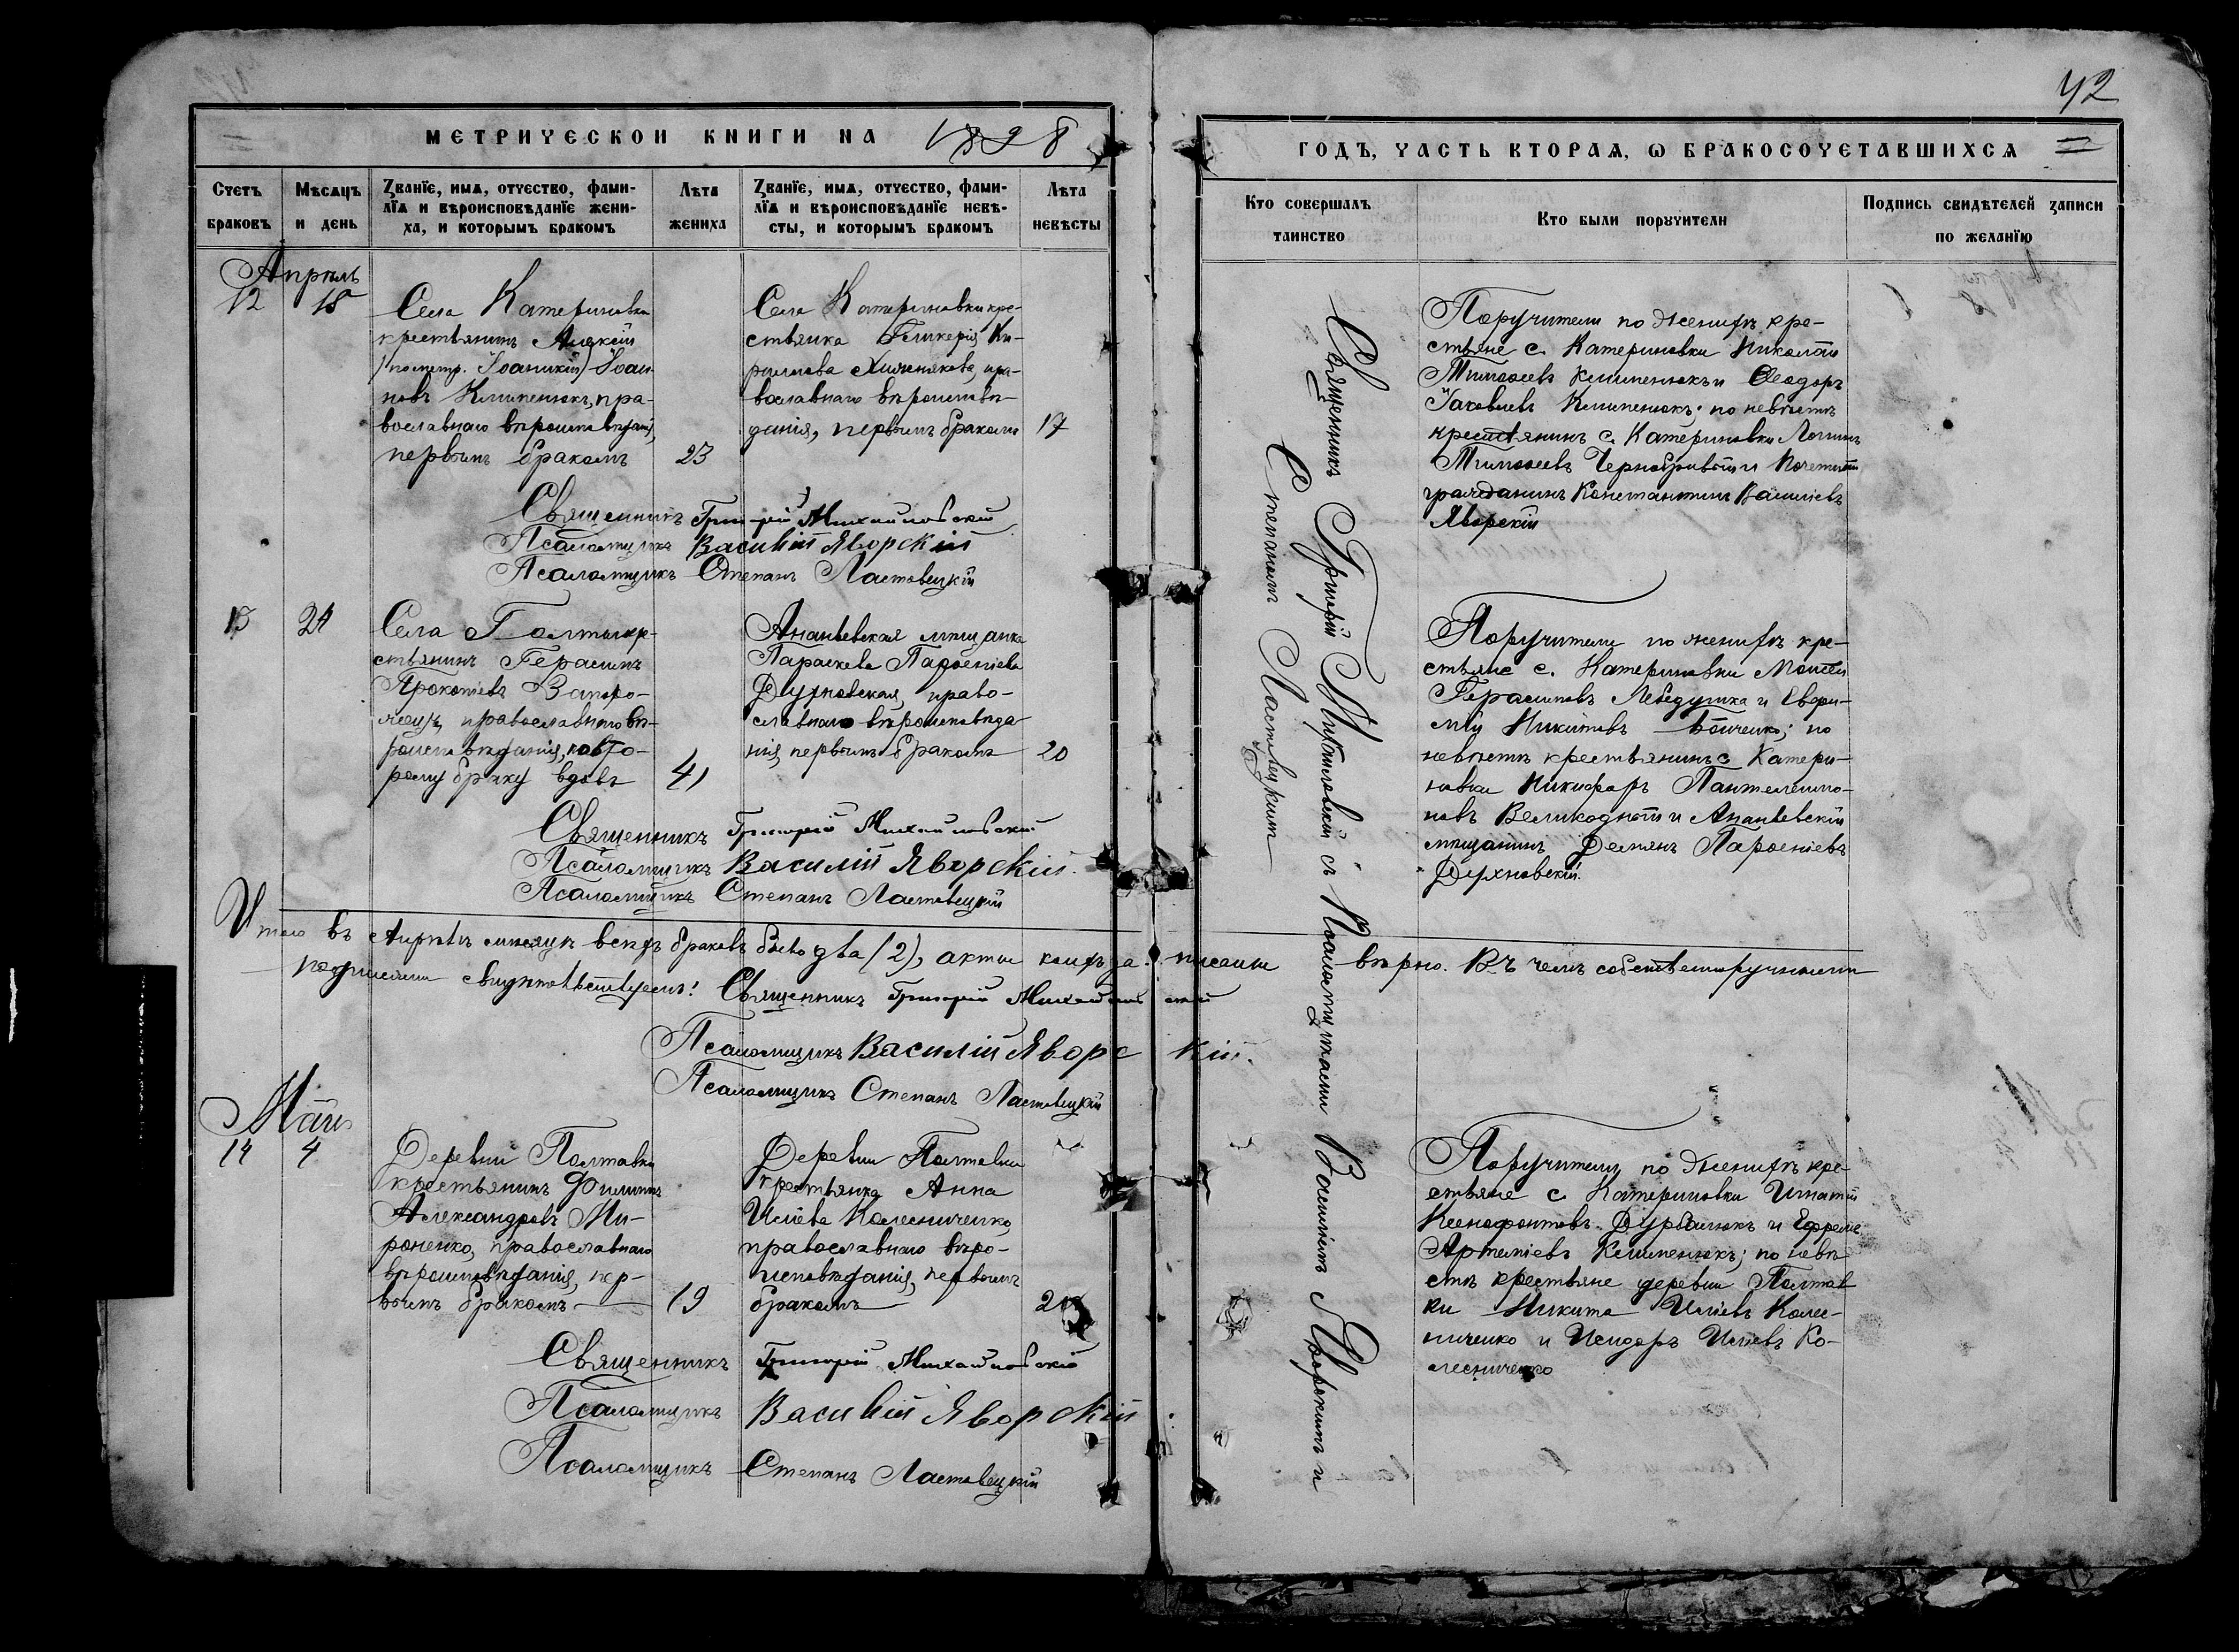 42
МЕТРИЧЕСКОЙ КНИГИ НА 1898
ГОДЪ, ЧАСТЬ ВТОРАѦ, Ѡ БРАКОСОЧЕТАВШИХСѦ
Счетъ браковъ
Мѣсяцъ и день
Званїе, имѧ, отчество, фами-
лїѧ и вѣроисповѣданїе жени-
ха, и которымъ бракомъ
Лѣта жениха
Званїе, имѧ, отчество, фами-
лїѧ и вѣроисповѣданїе невѣ-
сты, и которымъ бракомъ
Лѣта невѣсты
Кто совершалъ таинство
Кто были поручители
Подпись свидѣтелей записи
по желанїю
Апрѣль
12 18
Села Катериновки
крестьянинъ Аникій
(по метр. Іоаникій) Іоан-
новъ Клименюкъ, пра-
вославнаго вѣроисповѣданія,
первымъ бракомъ
23
Села Катериновки кре-
стьянка Гликерія Ки-
риллова, пра-
вославнаго вѣроисповѣ-
данія, первымъ бракомъ
17
Поручители по женихѣ кре-
стьяне с. Катериновки Николай
Тимоѳеевъ Клименюкъ и Ѳеодоръ
Іаковлевъ Клименюкъ; по невѣстѣ
крестьянинъ с. Катериновки Логинъ
Тимоѳеевъ Чернобривый и Почетный
гражданинъ Константинъ Васильевъ
Яворскій
Священникъ Григорій Михайловскій
Псаломщикъ Василій Яворскій
Псаломщикъ Степанъ Ластовецкій
Священникъ Григорій Михайловскій съ Псаломщиками Василіемъ Яворскимъ и
Степаномъ Ластовецкимъ
13 24
Села Болтыкре-
стьянинъ Герасимъ
Прокопіевъ Запоро-
жецъ, православнаго вѣ-
роисповѣданія, по вто-
рому браку вдовъ
41
Ананьевская мѣщанка
Параскева Парѳеніева
Духновская, право-
славнаго вѣроисповѣда-
нія, первымъ бракомъ
20
Поручители по женихѣ кре-
стьяне с. Катериновки Моисей
Герасимовъ Лебедушка и Евѳи-
мій Никитовъ Бойченко; по
невѣстѣ крестьянинъ с. Катери-
новки Никифоръ Пантелеимо-
новъ Великодный и Ананьевскій
мѣщанинъ Демянъ Парѳеніевъ
Духновскій.
Священникъ Григорій Михайловскій
Псаломщикъ Василій Яворскій.
Псаломщикъ Степанъ Ластовецкій
Итого въ Апрѣлѣ мѣсяцѣ всѣхъ браковъ было два (2), акты коихъ записаны вѣрно. Въ чемъ собственноручными
подписями свидѣтельствуемъ: Священникъ Григорій Михайловскій
Псаломщикъ Василій Яворскій.
Псаломщикъ Степанъ Ластовецкій
Май
14 4
Деревни Полтавки
крестьянинъ Филиппъ
Александровъ Ми-
роненко, православнаго
вѣроисповѣданія, пер-
вымъ бракомъ
19
Деревни Полтавки
крестьянка Анна
Иліева Колесниченко,
православнаго вѣро-
исповѣданія, первымъ
бракомъ
Поручители по женихѣ кре-
стьяне с. Катериновки Игнатій
Ксенофонтовъ Дурбалюкъ и Ефремъ
Артеміевъ Клименюкъ; по невѣ-
стѣ крестьяне деревни Полтав
ки Никита Иліевъ Колес-
ниченко и Исидоръ Иліевъ Ко-
лесниченко
Священникъ Григорій Михайловскій
Псаломщикъ Василій Яворскій
Псаломщикъ Степанъ Ластовецкій